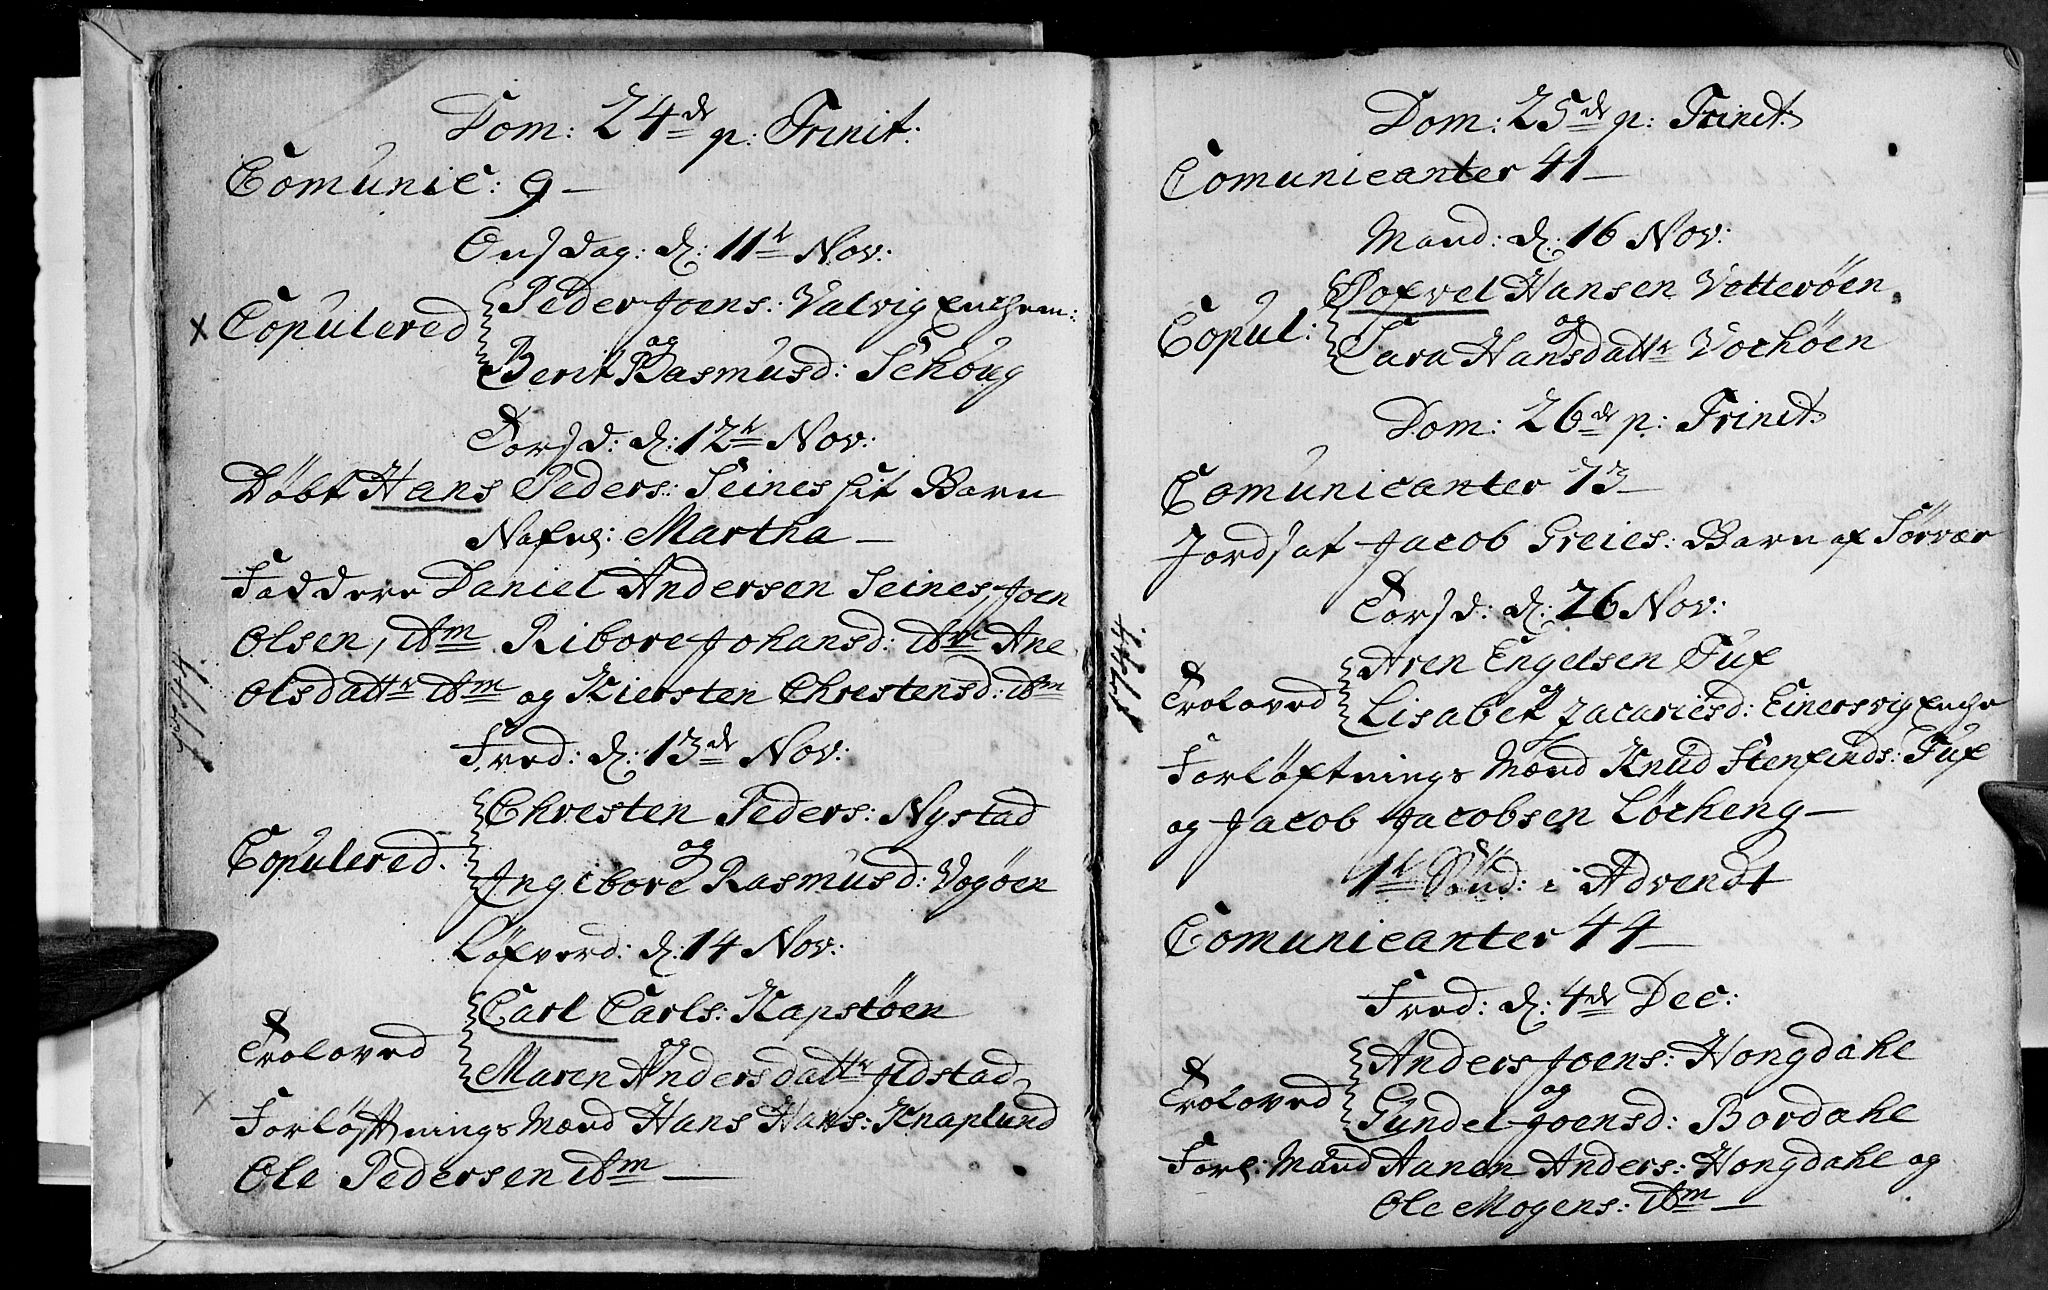 Dom: 24de p: Trinit:
Comunic: 9 —
Onsdag: d: 11te Nov:
x Copulered Peder Joens: Valvig Enchem:
og
Berit Rasmusd: Schoug
Torsd: d: 12te Nov:
Döbt Hans Peders: Seines sit Barn
Nafnl: Martha —
Faddere Daniel Andersen Seines, Joen
Olsen, ibm Ribore Johansd: ibm Ane
Olsdattr ibm og Kiersten Chrestensd: ibm
1744.
Fred: d: 13de Nov:
Chresten Peders: Nystad
Copulered. og
Ingebore Rasmusd: Vogöen
Löfverd: d: 14 Nov:
Carl Carls: Kapstöen
Troloved og
Maren Andersdattr Ildstad
Forlöftnings Mænd Hans Hans: Knaplund
Ole Pedersen ibm —
Dom: 25de p: Trinit:
Comunicanter 41 —
Mand: d: 16 Nov:
Pofvel Hansen Votteröen
Copul: og
Sara Hansdattr Vochöen
Dom: 26de p: Trinit:
Comunicanter 73 —
Jordsat Jacob Greies: Barn af Sörvær
Torsd: d: 26 Nov:
1744.
Aren Engelsen Tuf
Troloved og
Lisabet Zacariesd: Einersvig Enche
Forlöftnings Mænd Knud Stenfinds: Tuf
og Jacob Jacobsen Löcheng —
1te Sönd: i Advendt
Comunicanter 44 —
Fred: d: 4de Dec:
Anders Joens: Hongdahl
Troloved og
Gundel Joensd: Bordahl
Forl: Mænd Aanen Anders: Hongdahl og
Ole Mogens: ibm —